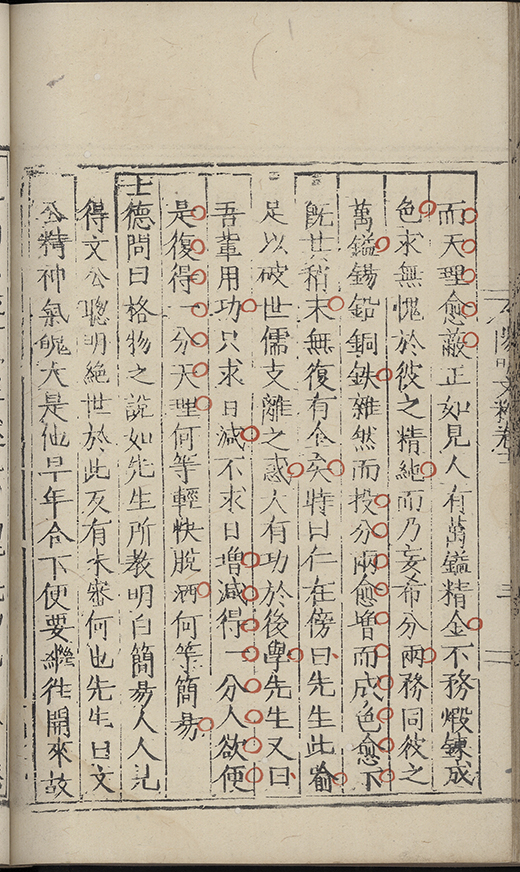 而天理愈蔽正如見人有萬鎰精金不務煅鍊成
色求無愧於彼之精純而乃妄希分兩務同彼之
萬鎰錫鉛銅鉄雜然而投分兩愈增而成色愈下
旣其稍末無復有金矣時曰仁在傍曰先生此喻
足以破世儒支離之惑大有功於後學先生又曰
吾輩用功只求日減不求日增減得一分人欲便
是復得一分天理何等輕快脫洒何等簡易
士德問曰格物之說如先生所教明白簡易人人見
得文公聰明絕世於此反有未審何也先生曰文
公精神氣魄大是他早年合下便要繼徃開來故